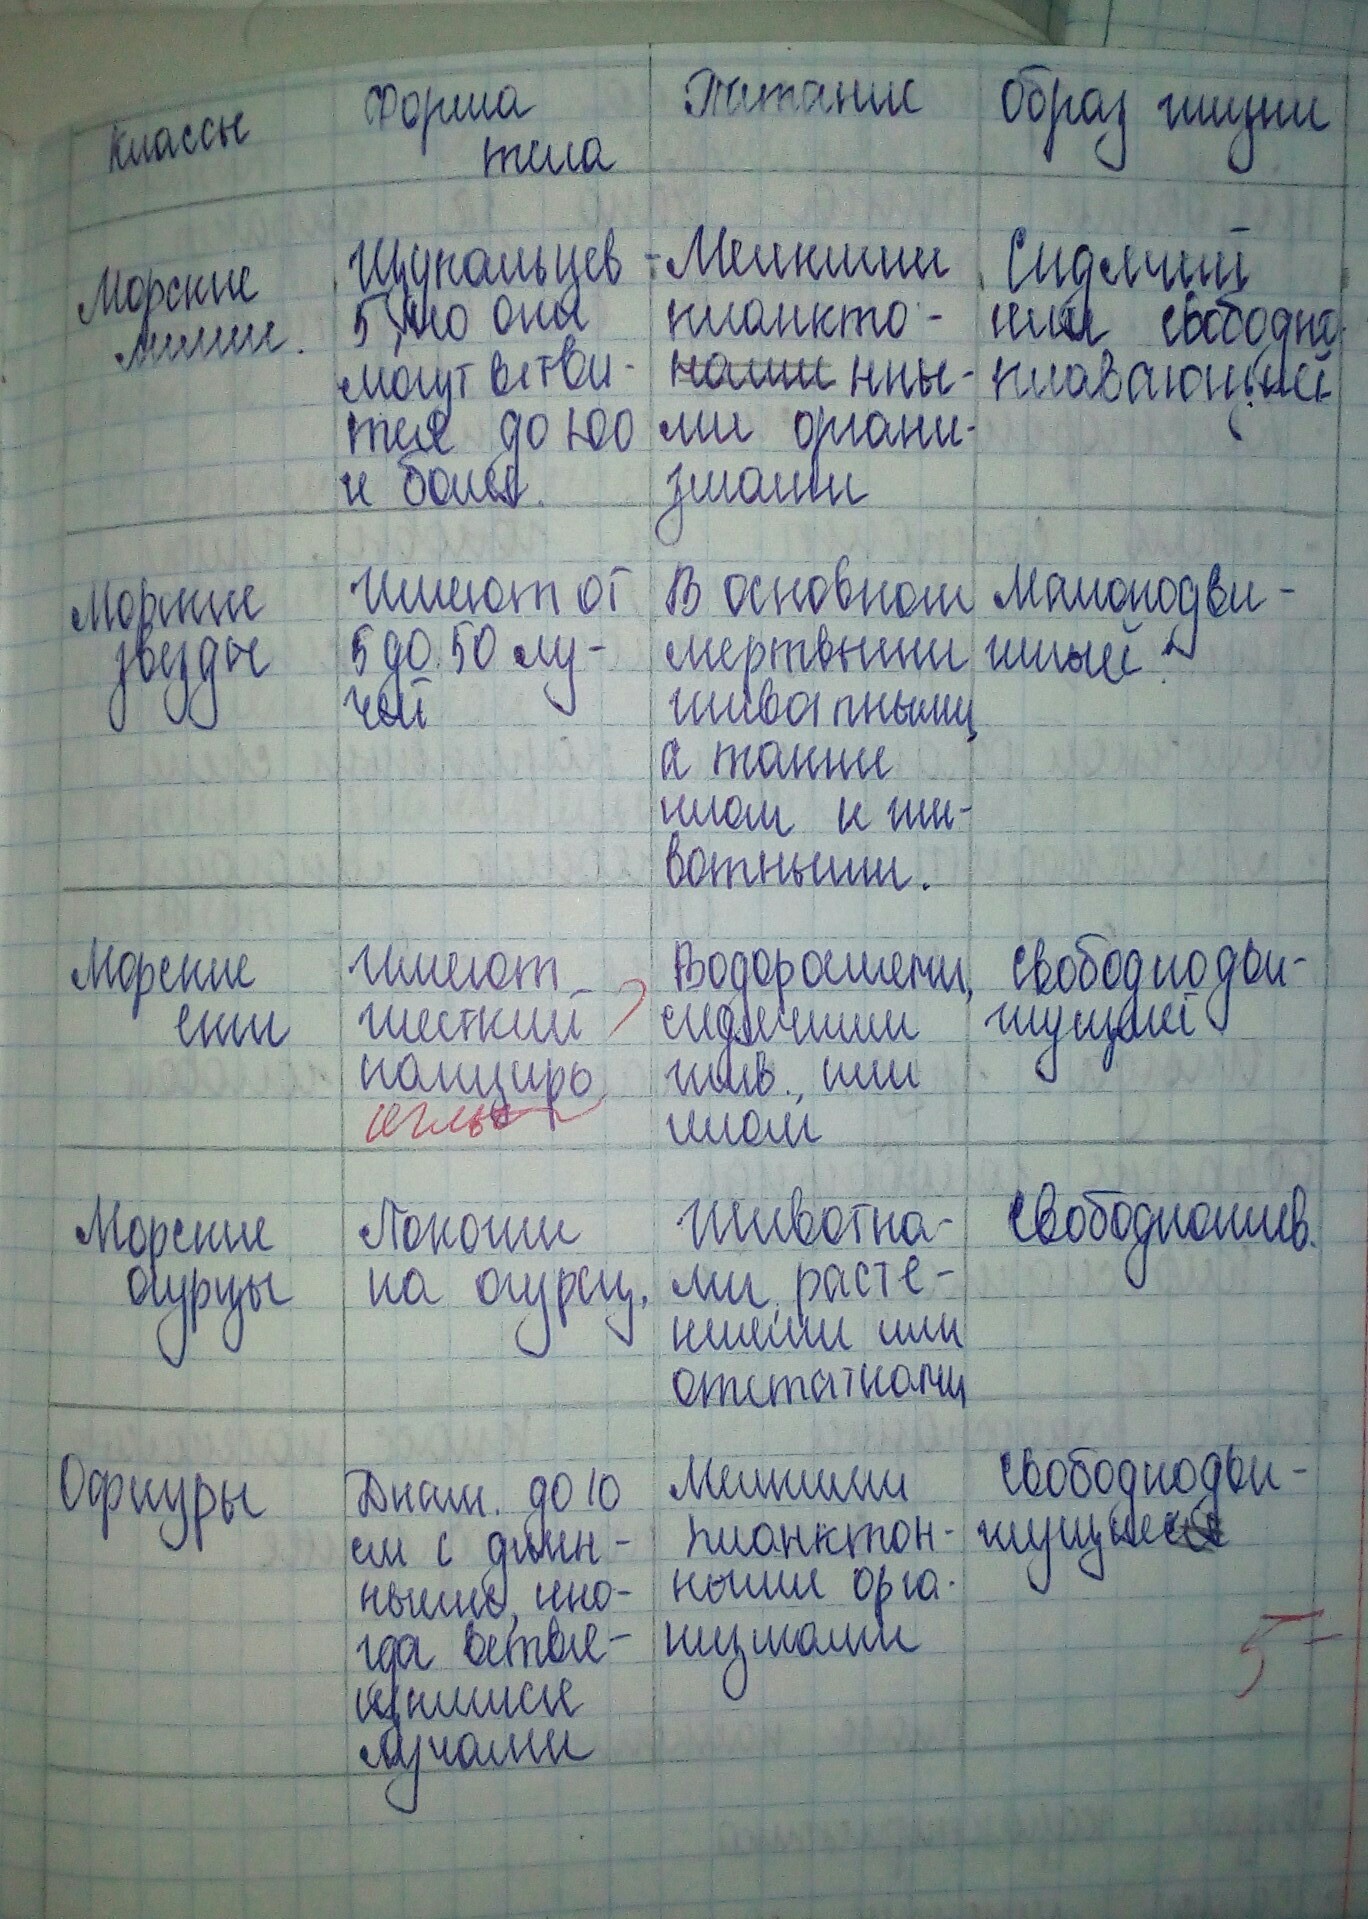 Классы
Форма
тела
Питание
Образ жизни
Морские
лилии.
Щупальцев -
5, но они
могут ветви-
тся до 100
и более.
Мелкими
планкто-
нными нны-
ми органи-
змами
Сидячий
или свободно
плавающий
Морские
звезды
Имеют от
5 до 50 лу-
чей
В основном
мертвыми
животными,
а также
илом и жи-
вотными.
Малоподви-
жный
Морские
ежи
Имеют
жесткий
панцирь
иглы
Водорослями,
сидячими
жив., или
илом
Свободнодви-
жущиеся
Морские
огурцы
Похожи
на огурец.
Животны-
ми, расте-
ниями или
остатками
Свободножив.
Офиуры
Диам. до 10
см с длин-
ными, ино-
гда ветвя-
щимися
лучами
Мелкими
планктон-
ными орга-
низмами
Свободнодви-
жущиеся
5-